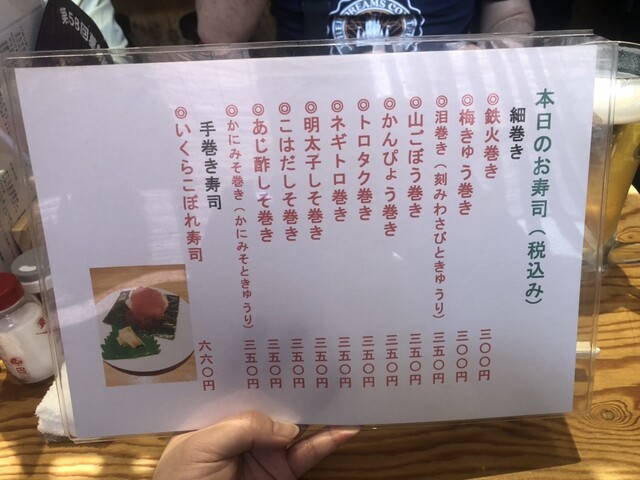 本日のお寿司（税込み）
細巻き
◎鉄火巻き 三〇〇円
◎梅きゅう巻き 三〇〇円
◎泪巻き（刻みわさびときゅうり） 三五〇円
◎山ごぼう巻き 三五〇円
◎かんぴょう巻き 三五〇円
◎トロタク巻き 三五〇円
◎ネギトロ巻き 三五〇円
◎明太子しそ巻き 三五〇円
◎こはだしそ巻き 三五〇円
◎あじ酢しそ巻き 三五〇円
◎かにみそ巻き（かにみそときゅうり） 三五〇円
手巻き寿司
◎いくらこぼれ寿司 六六〇円
第58回
DREAMS CO